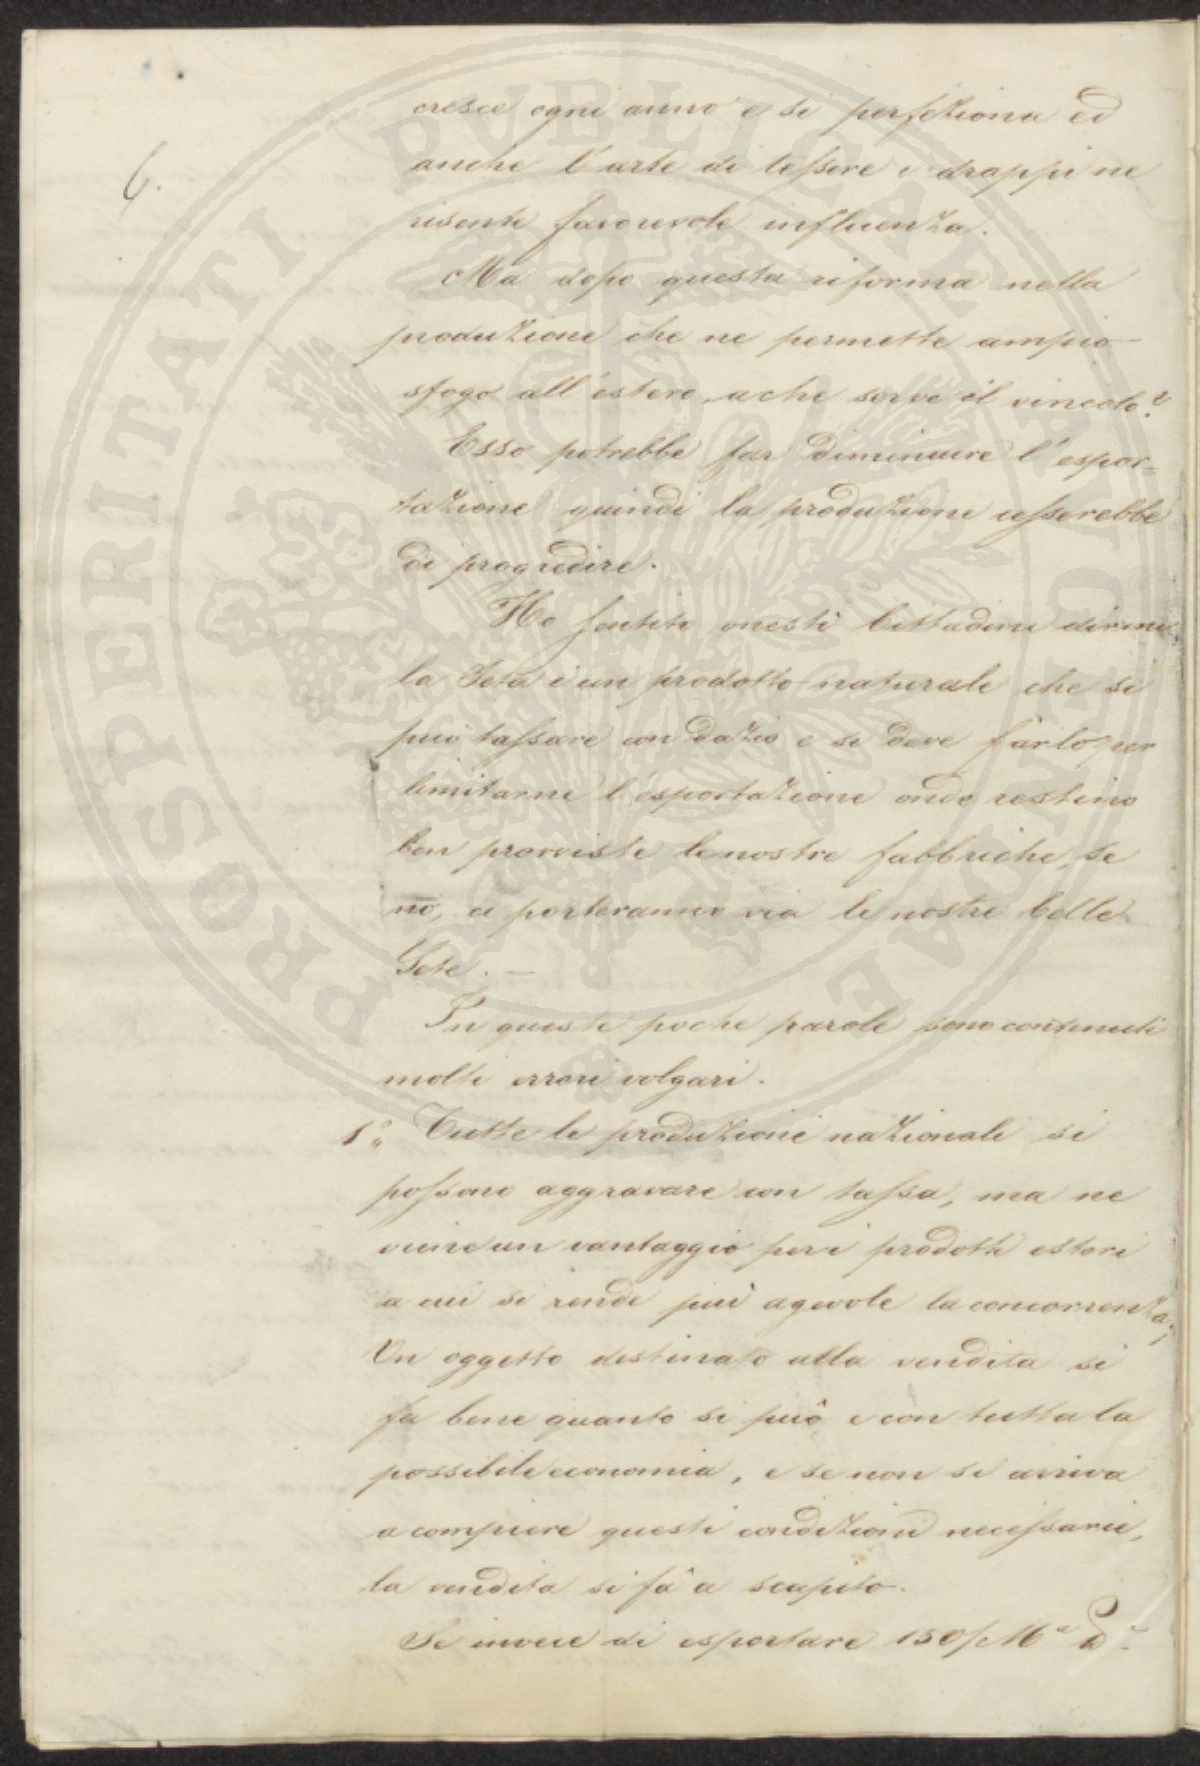 6.
cresce ogni anno e si perfeziona ed
anche l'arte di tessere i drappi ne
risente favorevole influenza.
Ma dopo questa riforma nella
produzione che ne permette ampio
sfogo all'estero, a che serve il vincolo?
Esso potrebbe far diminuire l'espor=
tazione quindi la produzione cesserebbe
di progredire.
Ho sentito onesti Cittadini dirmi
la Seta è un prodotto naturale che si
può tassare con dazio e si deve farlo per
limitarne l'esportazione onde restino
ben provviste le nostre fabbriche, se
nò, ci porteranno via le nostre belle
Sete. —
In queste poche parole sono contenuti
molti errori volgari.
1º Tutte le produzioni nazionali si
possono aggravare con tassa, ma ne
viene un vantaggio per i prodotti esteri
a cui si rende più agevole la concorrenza;
Un oggetto destinato alla vendita si
fa bene quanto si può e con tutta la
possibile economia, e se non si arriva
a compiere questi condizioni necessarie,
la vendita si fà a scapito.
Se invece di esportare 150/M
PROSPERITATI PVBLICAE